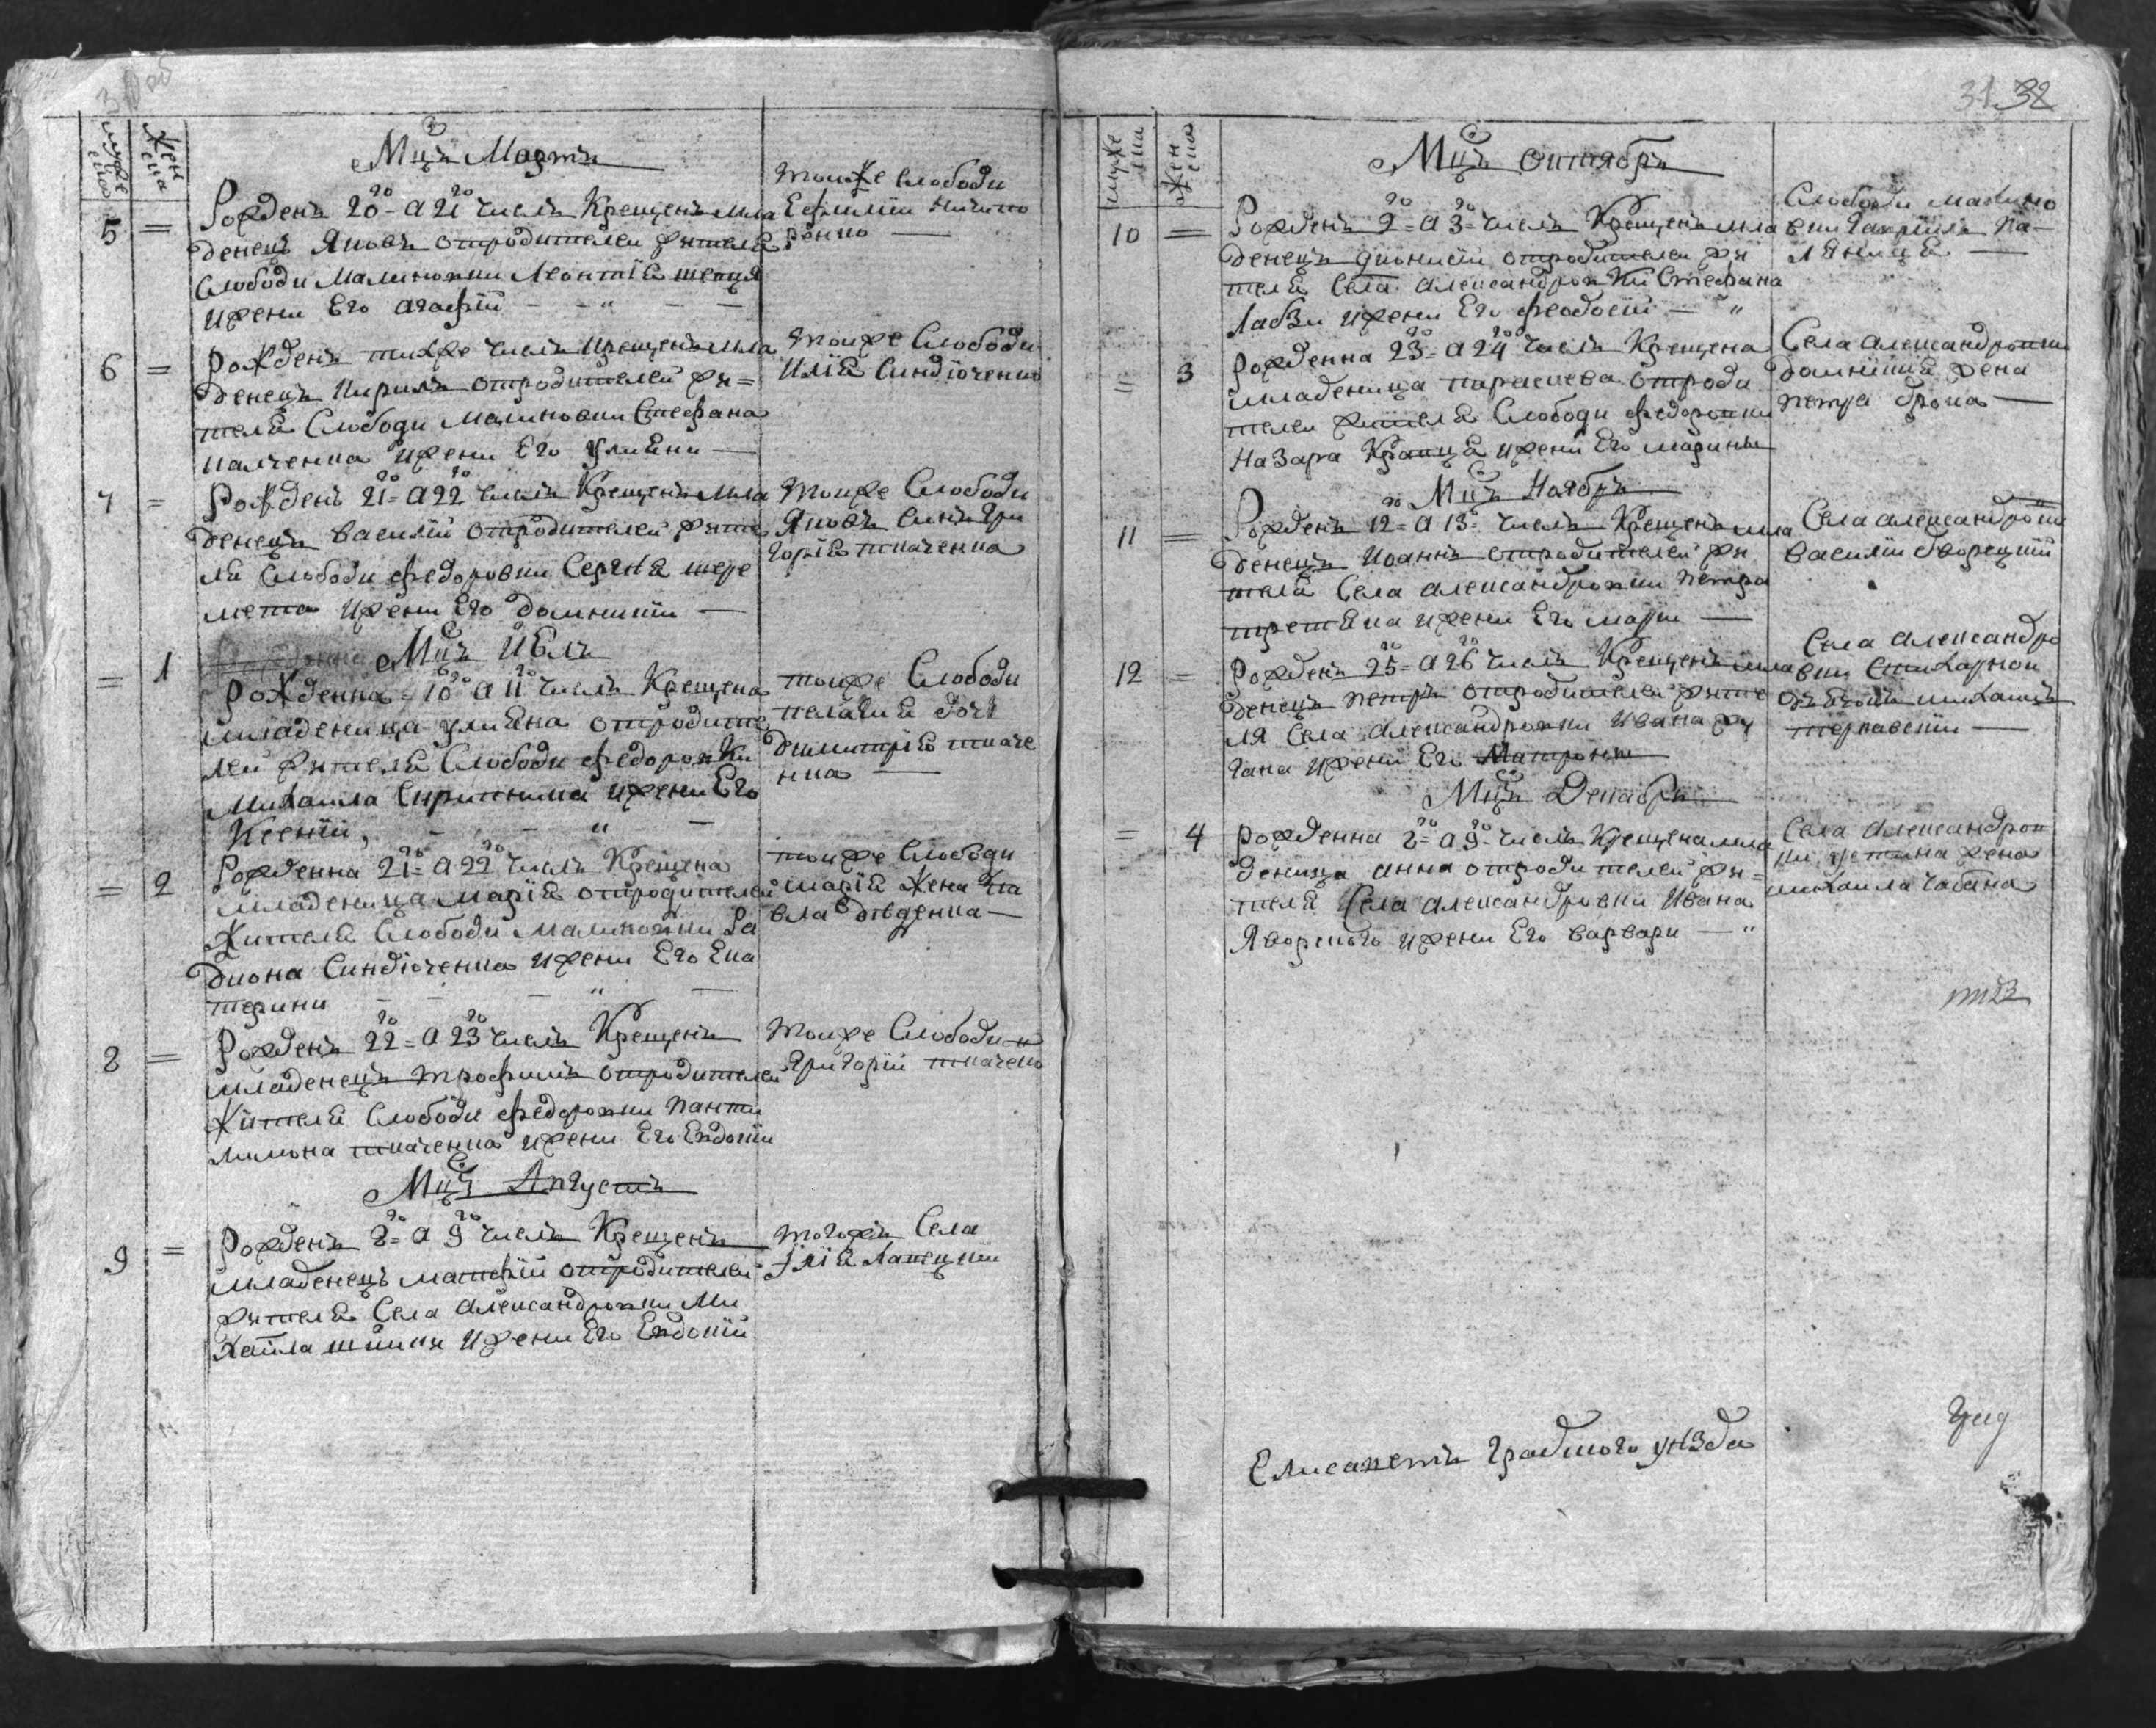 30 об
муже ска
жен ска
Мцъ Мартъ
5 = Рожденъ 20го а 21го числъ Крещенъ мла
денецъ Яковъ отродителей жителя
Слободи Малиновки Леонтїя шевця
ижени Его агафїй
тоиже Слободи
Ефимїи
6 = рожденъ тихже числъ икрещенъ мла
денецъ Кирилъ отродителей жи=
теля Слободи Малиновки Стефана
ижени Его улияни
тоиже Слободи
Илїя Синдїоченко
7 = рожденъ 21го а 22го числъ Крещенъ мла
денецъ василїй отродителей жите
ля Слободи федоровки Сергѣя шере
мета ижени Его домникїи
тоиже Слободи
Яковъ синъ гри
горїя ткаченка
Мцъ Июлъ
= 1 рожденна 10го а 11го числъ Крещена
младеница улияна отродите
лей жителя Слободи федоровки
Михаила Скрипника ижени Его
Ксенїи,
тоиже Слободи
пелагия дочь
димитрїя ткаче
нка
= 2 рожденна 21го а 22го числъ Крещена
младеница марїя отродителей
Жителя Слободи Малиновки Ра
диона Синдїоченка ижени Его Ека
терини
тоиже Слободи
марїя жена па
вла
8 = рожденъ 22го а 23го числъ Крещенъ
младенецъ трофимъ отродителей
Жителя Слободи федоровки панти
лимона ткаченка ижени Его Евдокїи
тоиже Слободи
григорїй ткаченко
Мцъ Августъ
9 = рожденъ 8го а 9го числъ Крещенъ
младенецъ матфїй отродителей
жителя Села александровки Ми
хаила ижени Его Евдокїй
тогожъ Села
Їлїя
31 32
муже ска
жен ска
Мцъ октябръ
10 = Рожденъ 2го а 3го числъ Крещенъ мла
денецъ дионисїи отродителей жи
теля Села александровки Стефана
Лабзи ижени Его феодосїй
Слободи малино
вки гаврїилъ па
ляница
= 3 рожденна 23го а 24го числъ Крещена
младеница параскева отроди
телей жителя Слободи федоровки
назара Кравця ижени Его марины
Села александровки
домникїя жена
петра
Мцъ Ноябръ
11 = Рожденъ 12го а 13го числъ Крещенъ мла
денецъ Иоаннъ отродителей жи
теля Села александровки петра
третяка ижени Его марїи
Села александровки
василїи дворецкїй
12 = рожденъ 25го а 26го числъ Крещенъ мла
денецъ петръ отродителей жите
ля Села Александровки Ивана
ижени Его Матроны
Села александро
вки
михаилъ
Мцъ Декабръ
= 4 рожденна 8го а 9го числъ Крещена мла
деница анна отродителей жи=
теля Села александровки Ивана
Яворского ижени Его варвари
Села александров
ки устина жена
михаила чабана
Елисаветъ градского уѣзда